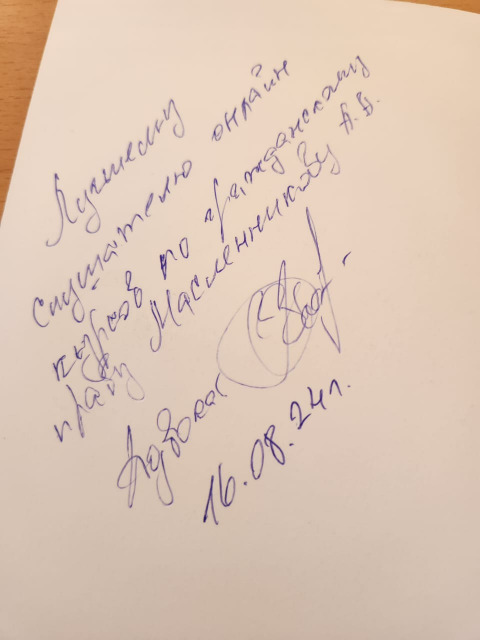 Лучшему
слушателю онлайн
курсов по гражданскому
праву Масленникову А.В.
Адвокат
16.08.24г.